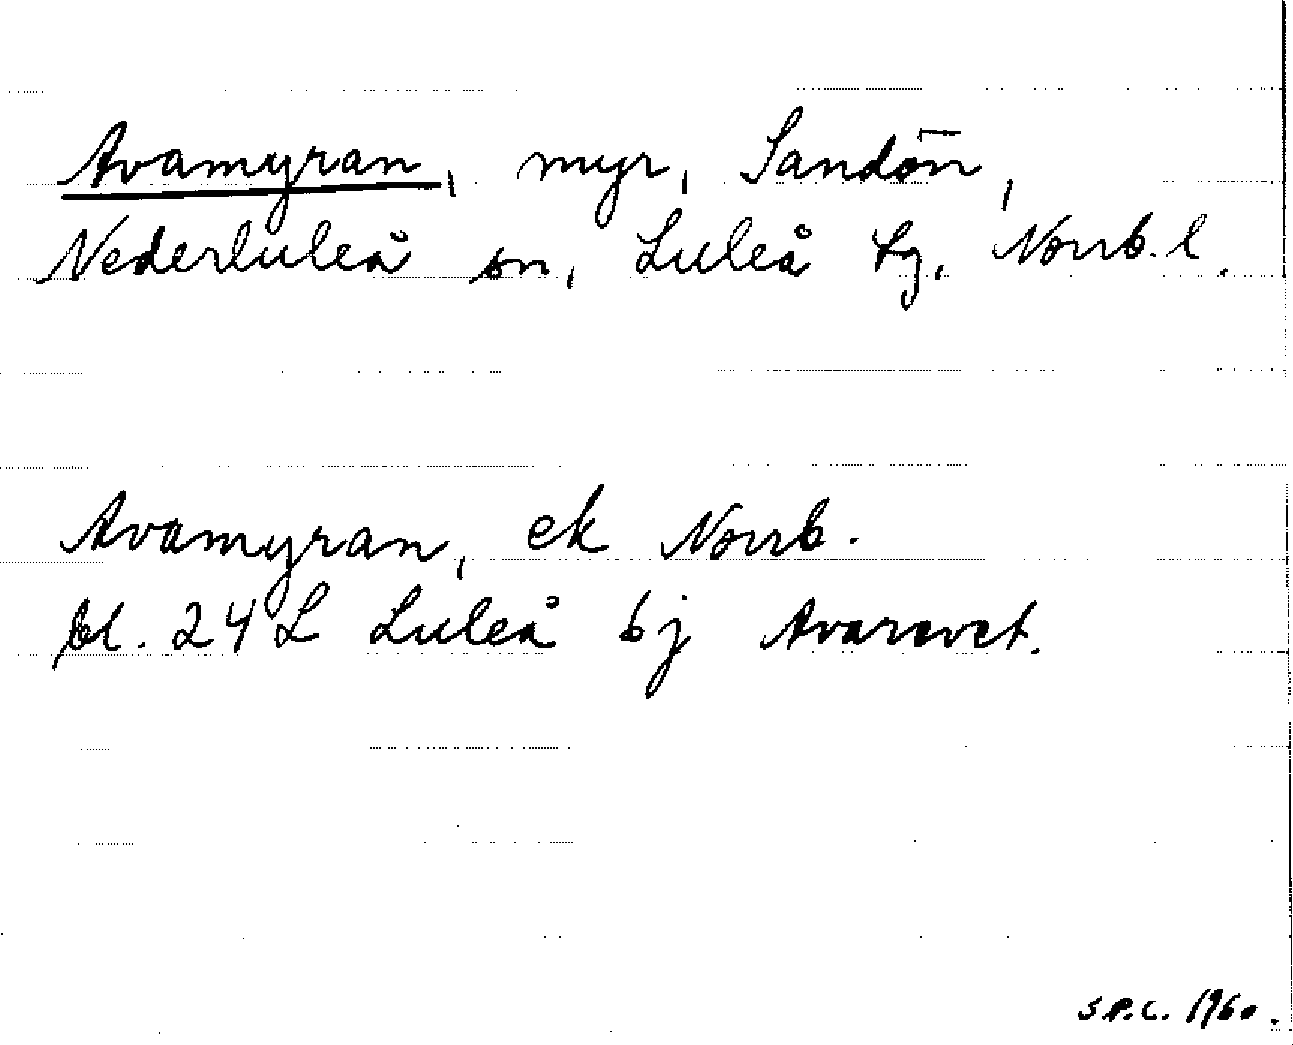 Avamyran, myr, Sandön,
Nederluleå sn, Luleå tg, Norrb. l.
Avamyran, ek Norrb.
bl. 24 L Luleå 6j Avaravet.
S.P.C. 1960.